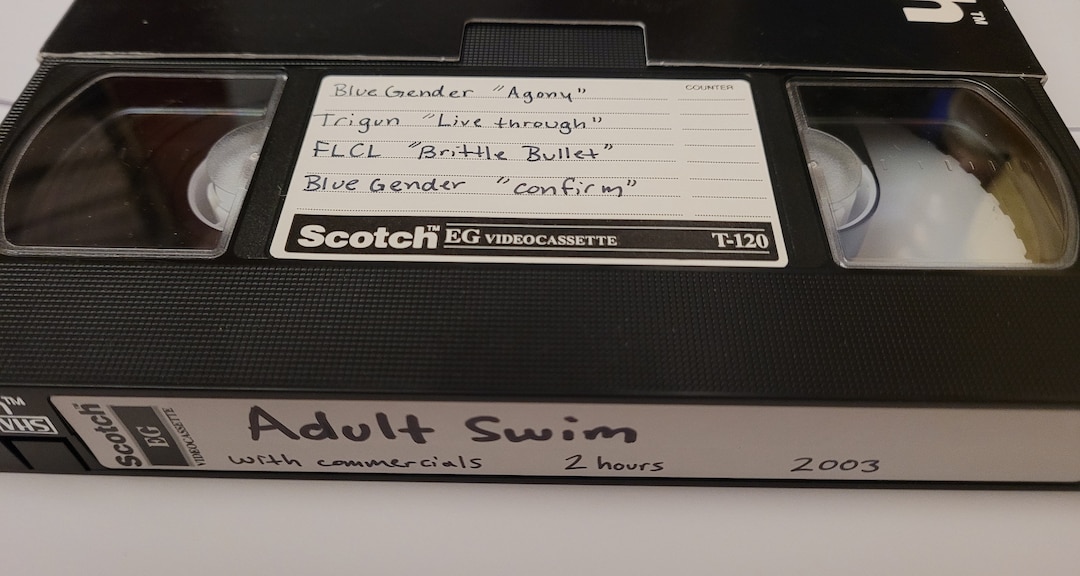 Blue Gender "Agony"
COUNTER
Trigun "Live through"
FLCL "Brittle Bullet"
Blue Gender "confirm"
Scotch™ EG VIDEOCASSETTE T-120
Scotch EG VIDEOCASSETTE
Adult Swim
with commercials 2 hours 2003
TM
VHS
TM